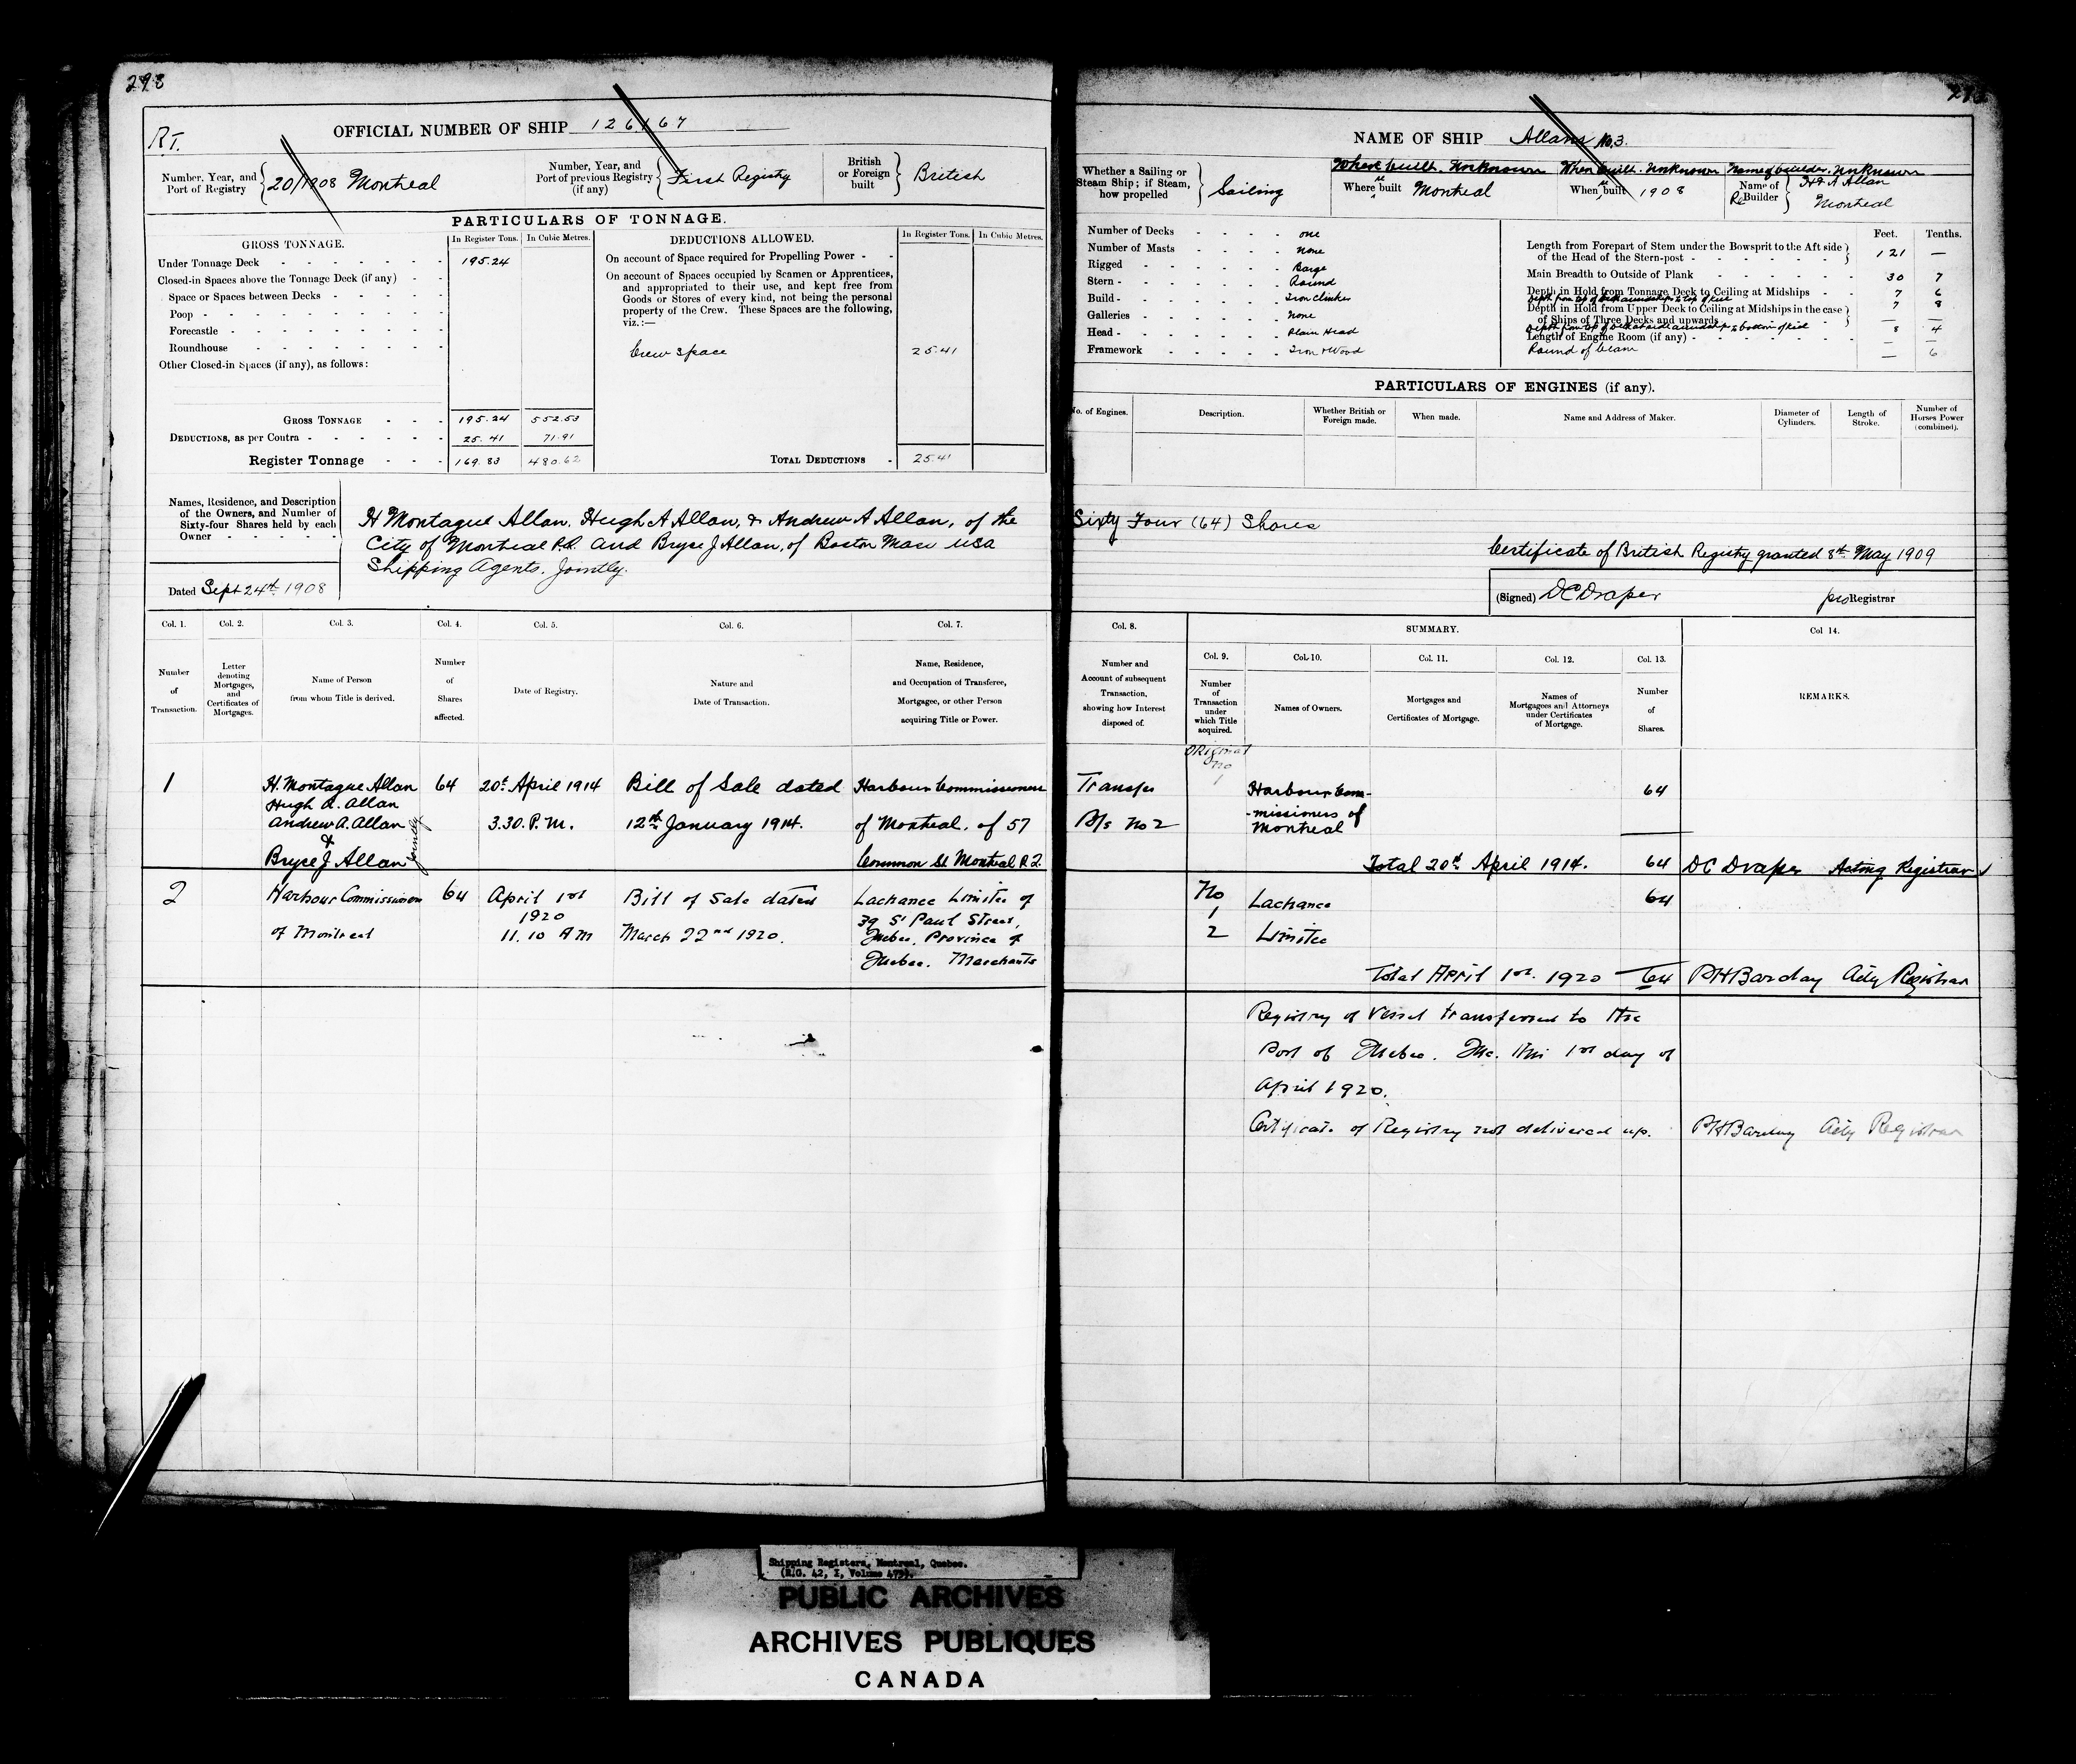 298
R.T.
OFFICIAL NUMBER OF SHIP 126167
Number, Year, and Port of Registry 20/1908 Montreal
Number, Year, and Port of previous Registry (if any) First Registry
British or Foreign built British
PARTICULARS OF TONNAGE.
GROSS TONNAGE. In Register Tons. In Cubic Metres.
Under Tonnage Deck 195.24
Closed-in Spaces above the Tonnage Deck (if any)
Space or Spaces between Decks
Poop
Forecastle
Roundhouse
Other Closed-in Spaces (if any), as follows:
GROSS TONNAGE 195.24 552.53
DEDUCTIONS, as per Contra 25.41 71.91
Register Tonnage 169.83 480.62
DEDUCTIONS ALLOWED. In Register Tons. In Cubic Metres.
On account of Space required for Propelling Power
On account of Spaces occupied by Seamen or Apprentices,
and appropriated to their use, and kept free from
Goods or Stores of every kind, not being the personal
property of the Crew. These Spaces are the following,
viz.:—
Crew Space 25.41
TOTAL DEDUCTIONS 25.41
Names, Residence, and Description
of the Owners, and Number of
Sixty-four Shares held by each
Owner
Dated Sept 24th 1908
H Montague Allan, Hugh A Allan, & Andrew A Allan, of the
City of Montreal P.Q. and Bryce J Allan, of Boston Mass USA
Shipping Agents. Jointly.
Col. 1. Col. 2. Col. 3. Col. 4. Col. 5. Col. 6. Col. 7.
Number of Transaction.
Letter denoting Mortgages, and Certificates of Mortgages.
Name of Person from whom Title is derived.
Number of Shares affected.
Date of Registry.
Nature and Date of Transaction.
Name, Residence, and Occupation of Transferee, Mortgagee, or other Person acquiring Title or Power.
1 H. Montague Allan 64 20th April 1914 Bill of Sale dated Harbour Commissioners
Hugh A. Allan
Andrew A. Allan 3.30. P.M. 12th January 1914. of Montreal, of 57
&
Bryce J Allan jointly Common St Montreal P.Q.
2 Harbour Commissioners 64 April 1st Bill of Sale dated Lachance Limitee of
1920 39 St Paul Street,
of Montreal 11.10 AM March 22nd 1920. Quebec, Province of
Quebec. Merchants
NAME OF SHIP Allans No. 3.
Where built. Unknown When built. Unknown Name of builder. Unknown
Whether a Sailing or Steam Ship; if Steam, how propelled Sailing
Where re built Montreal
When re built 1908
Name of Re Builder H & A Allan
Montreal
Number of Decks one
Number of Masts none
Rigged Barge
Stern Round
Build Iron clinker
Galleries none
Head Plain Head
Framework Iron & Wood
Feet. Tenths.
Length from Forepart of Stem under the Bowsprit to the Aft side
of the Head of the Stern-post 121 —
Main Breadth to Outside of Plank 30 7
Depth in Hold from Tonnage Deck to Ceiling at Midships 7 6
Depth from top of deck amidships to top of keel 7 8
Depth in Hold from Upper Deck to Ceiling at Midships in the case
of Ships of Three Decks and upwards — —
Depth from top of deck at side amidships to bottom of keel 8 4
Length of Engine Room (if any) — —
Round of beam — 6
PARTICULARS OF ENGINES (if any).
No. of Engines. Description. Whether British or Foreign made. When made. Name and Address of Maker. Diameter of Cylinders. Length of Stroke. Number of Horses Power (combined).
Sixty Four (64) Shares
Certificate of British Registry granted 8th May 1909
(Signed) DC Draper pro Registrar
Col. 8. SUMMARY. Col 14.
Col. 9. Col. 10. Col. 11. Col. 12. Col. 13.
Number and Account of subsequent Transaction, showing how Interest disposed of.
Number of Transaction under which Title acquired.
Names of Owners.
Mortgages and Certificates of Mortgage.
Names of Mortgagees and Attorneys under Certificates of Mortgage.
Number of Shares.
REMARKS.
Original
no
Transfer 1 Harbour Com- 64
B/s No 2 -missioners of
Montreal
Total 20th April 1914. 64 DC Draper Acting Registrar
No Lachance 64
1
2 Limitee
Total April 1st. 1920 64 PH Barclay Actg Registrar
Registry of Vessel transferred to the
Port of Quebec. Que. this 1st day of
April 1920.
Certificate of Registry not delivered up. PH Barclay Actg Registrar
Shipping Registers, Montreal, Quebec.
(R.G. 42, I, Volume 475).
PUBLIC ARCHIVES
ARCHIVES PUBLIQUES
CANADA